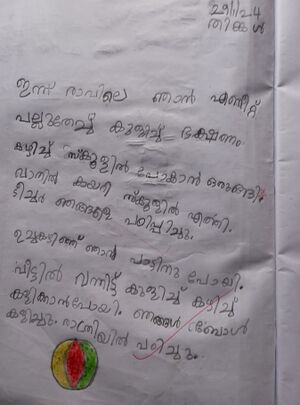 തിങ്കൾ
ഇന്ന് രാവിലെ ഞാൻ എണീറ്റ്
പല്ലുതേച്ച് കുളിച്ച് ഭക്ഷണം
കഴിച്ച് സ്കൂളിൽ പോകാൻ ഒരുങ്ങി.
വാനിൽ കയറി സ്കൂളിൽ എത്തി.
ടീച്ചർ ഞങ്ങളെ പഠിപ്പിച്ചു.
ഉച്ചകഴിഞ്ഞ് ഞാൻ പാട്ടിനു പോയി.
വീട്ടിൽ വന്നിട്ട് കുളിച്ച് കഴിച്ച്
കളിക്കാൻപോയി. ഞങ്ങൾ ബോൾ
കളിച്ചു. രാത്രിയിൽ പഠിച്ചു.